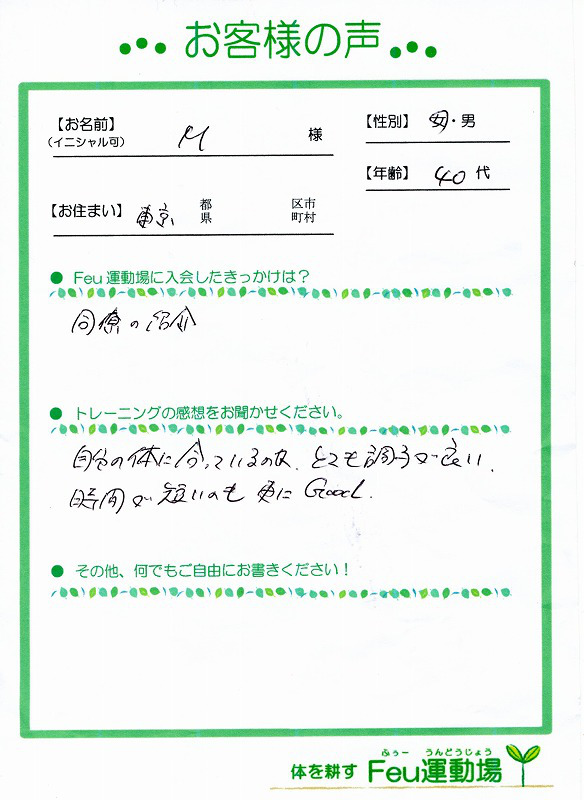 お客様の声
【お名前】 M 様
(イニシャル可)
【性別】 女・男
【年齢】 40 代
【お住まい】 東京 都県 区市町村
● Feu運動場に入会したきっかけは？
同僚の紹介
● トレーニングの感想をお聞かせください。
自分の体に合っているのか、とても調子が良い。
時間が短いのも更にGood.
● その他、何でもご自由にお書きください！
ふぅー うんどうじょう
体を耕す Feu運動場